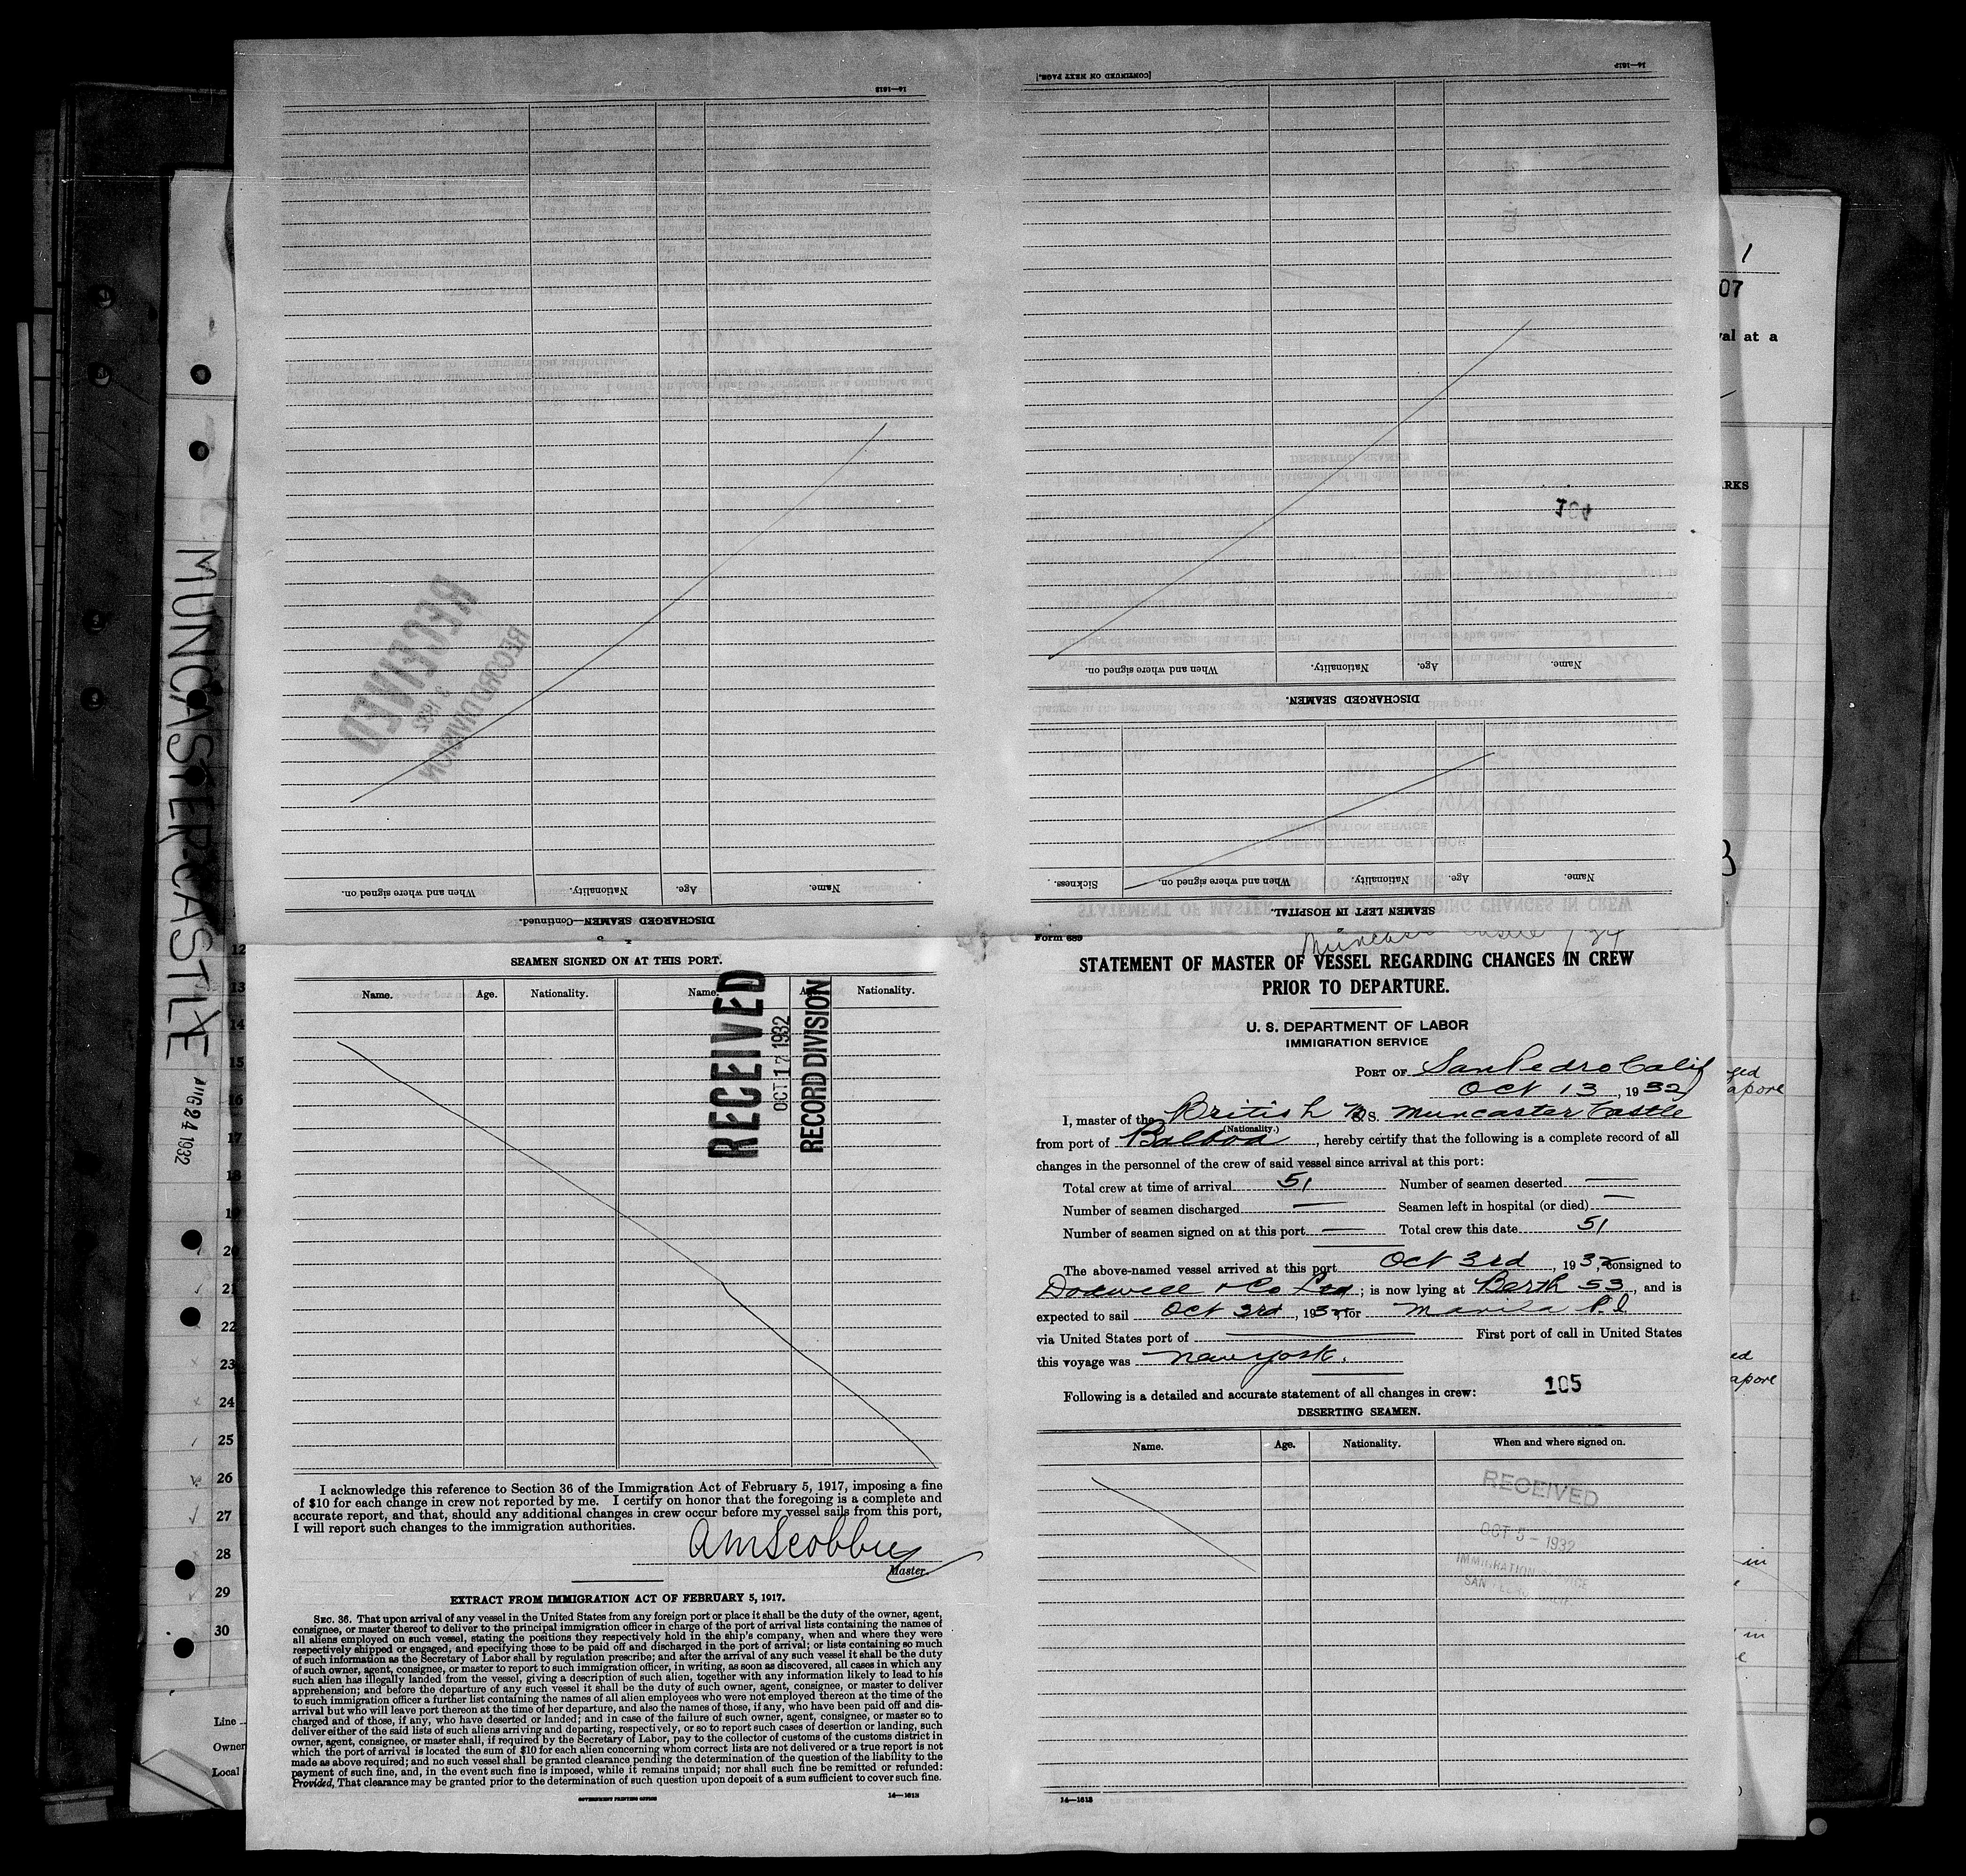 [CONTINUED ON NEXT PAGE.]
14—1613
When and where signed on.
Nationality.
Age.
Name.
DISCHARGED SEAMEN—Continued.
RECEIVED
1932
RECORD DIVISION
104
When and where signed on.
Nationality.
Age.
Name.
DISCHARGED SEAMEN.
Sickness.
When and where signed on.
Nationality.
Age.
Name.
SEAMEN LEFT IN HOSPITAL.
MUNCASTER CASTLE
AUG 24 1932
12
13
14
15
16
17
18
19
20
21
22
23
24
25
26
27
28
29
30
Line
Owner
Local
SEAMEN SIGNED ON AT THIS PORT.
Name. Age. Nationality. Name. Nationality.
RECEIVED
OCT 17 1932
RECORD DIVISION
I acknowledge this reference to Section 36 of the Immigration Act of February 5, 1917, imposing a fine
of $10 for each change in crew not reported by me. I certify on honor that the foregoing is a complete and
accurate report, and that, should any additional changes in crew occur before my vessel sails from this port,
I will report such changes to the immigration authorities.
AMScobbie
Master.
EXTRACT FROM IMMIGRATION ACT OF FEBRUARY 5, 1917.
SEC. 36. That upon arrival of any vessel in the United States from any foreign port or place it shall be the duty of the owner, agent,
consignee, or master thereof to deliver to the principal immigration officer in charge of the port of arrival lists containing the names of
all aliens employed on such vessel, stating the positions they respectively hold in the ship's company, when and where they were
respectively shipped or engaged, and specifying those to be paid off and discharged in the port of arrival; or lists containing so much
of such information as the Secretary of Labor shall by regulation prescribe; and after the arrival of any such vessel it shall be the duty
of such owner, agent, consignee, or master to report to such immigration officer, in writing, as soon as discovered, all cases in which any
such alien has illegally landed from the vessel, giving a description of such alien, together with any information likely to lead to his
apprehension; and before the departure of any such vessel it shall be the duty of such owner, agent, consignee, or master to deliver
to such immigration officer a further list containing the names of all alien employees who were not employed thereon at the time of the
arrival but who will leave port thereon at the time of her departure, and also the names of those, if any, who have been paid off and dis-
charged and of those, if any, who have deserted or landed; and in case of the failure of such owner, agent, consignee, or master so to
deliver either of the said lists of such aliens arriving and departing, respectively, or so to report such cases of desertion or landing, such
owner, agent, consignee, or master shall, if required by the Secretary of Labor, pay to the collector of customs of the customs district in
which the port of arrival is located the sum of $10 for each alien concerning whom correct lists are not delivered or a true report is not
made as above required; and no such vessel shall be granted clearance pending the determination of the question of the liability to the
payment of such fine, and, in the event such fine is imposed, while it remains unpaid; nor shall such fine be remitted or refunded:
Provided, That clearance may be granted prior to the determination of such question upon deposit of a sum sufficient to cover such fine.
GOVERNMENT PRINTING OFFICE
14—1613
Form 689
STATEMENT OF MASTER OF VESSEL REGARDING CHANGES IN CREW
PRIOR TO DEPARTURE.
U. S. DEPARTMENT OF LABOR
IMMIGRATION SERVICE
PORT OF San Pedro Calif
Oct 13, 1932
I, master of the British M S. Muncaster Castle
(Nationality.)
from port of Balboa, hereby certify that the following is a complete record of all
changes in the personnel of the crew of said vessel since arrival at this port:
Total crew at time of arrival 51 Number of seamen deserted —
Number of seamen discharged — Seamen left in hospital (or died) —
Number of seamen signed on at this port — Total crew this date 51
The above-named vessel arrived at this port Oct 3rd, 1932, consigned to
Dodwell & Co Ltd; is now lying at Berth 53, and is
expected to sail Oct 3rd, 1932, for Manila P.I
via United States port of — First port of call in United States
this voyage was New York.
Following is a detailed and accurate statement of all changes in crew:
105
DESERTING SEAMEN.
Name. Age. Nationality. When and where signed on.
RECEIVED
OCT 5 - 1932
IMMIGRATION SERVICE
14—1613
1
07
val at a
RKS
apore
apore
in
in